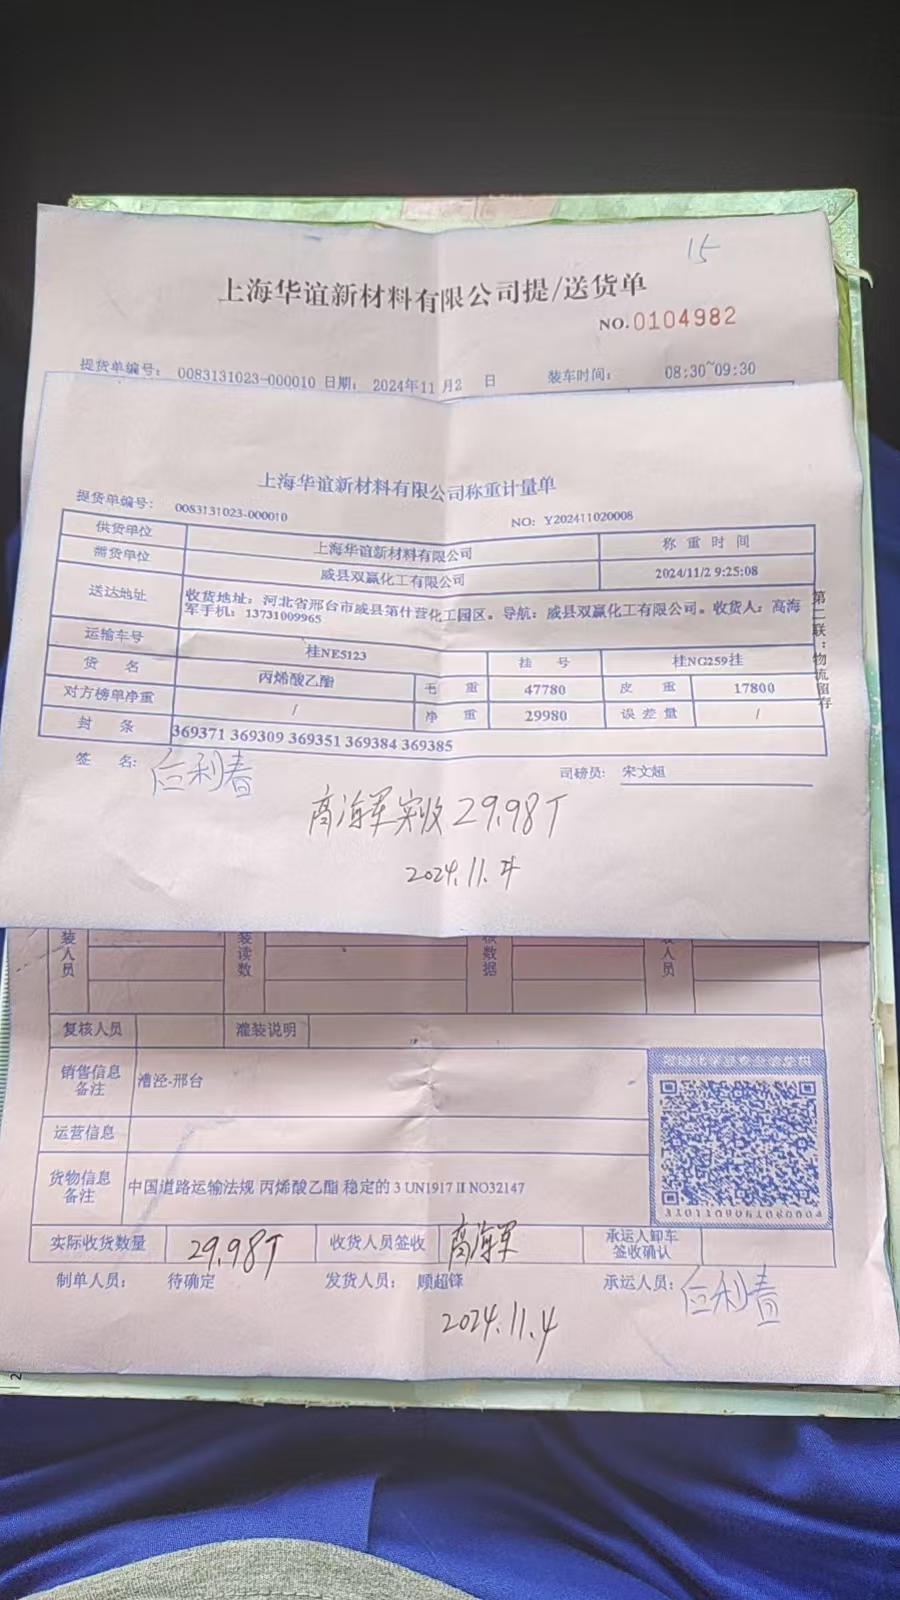 15
上海华谊新材料有限公司提/送货单
NO.0104982
提货单编号: 0083131023-000010 日期: 2024年11月2 日 装车时间: 08:30~09:30
上海华谊新材料有限公司称重计量单
提货单编号: 0083131023-000010 NO: Y202411020008
供货单位 上海华谊新材料有限公司 称重时间
需货单位 威县双赢化工有限公司 2024/11/2 9:25:08
送达地址 收货地址: 河北省邢台市威县第什营化工园区。导航: 威县双赢化工有限公司。收货人: 高海
军手机: 13731009965
运输车号 桂NE5123 挂号 桂NG259挂
货名 丙烯酸乙酯 毛重 47780 皮重 17800
对方榜单净重 / 净重 29980 误差量 /
封条 369371 369309 369351 369384 369385
第二联:物流留存
签名: 司磅员: 宋文超
高海军实收29.98T
2024.11.4
装人员 装读数 核数据 人员
复核人员 灌装说明
销售信息备注 漕泾-邢台
运营信息
货物信息备注 中国道路运输法规 丙烯酸乙酯 稳定的 3 UN1917 II NO32147
实际收货数量 29.98T 收货人员签收 高海军 承运人卸车签收确认
制单人员: 待确定 发货人员: 顾超锋 承运人员:
2024.11.4